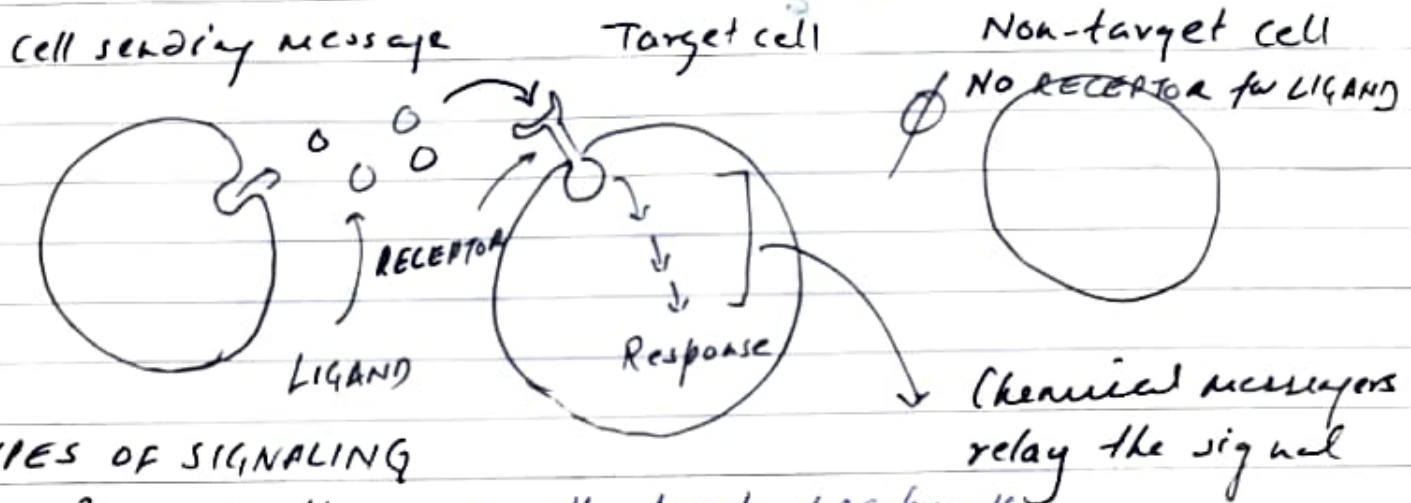 Cell sending message
Target cell
Non-target cell
Ø NO RECEPTOR for LIGAND
RECEPTOR
LIGAND
Response
Chemical messengers
relay the signal
PES OF SIGNALING